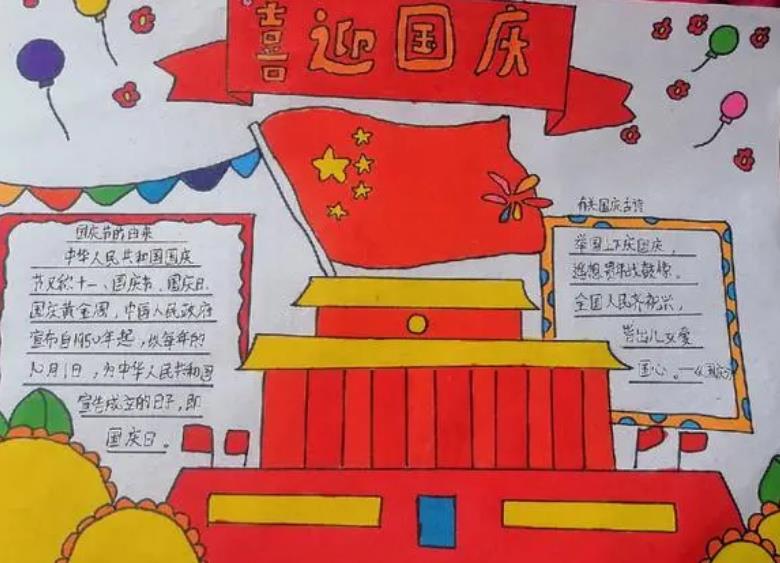 喜迎国庆
国庆节的由来
中华人民共和国国庆
节又称十一、国庆节、国庆日、
国庆黄金周，中国人民政府
宣布自1950年起，以每年的
10月1日，为中华人民共和国
宣告成立的日子，即
国庆日。
有关国庆古诗
举国上下庆国庆，
遥想当年战鼓惊。
全国人民齐祝兴，
皆出儿女爱
国心。——《国庆》